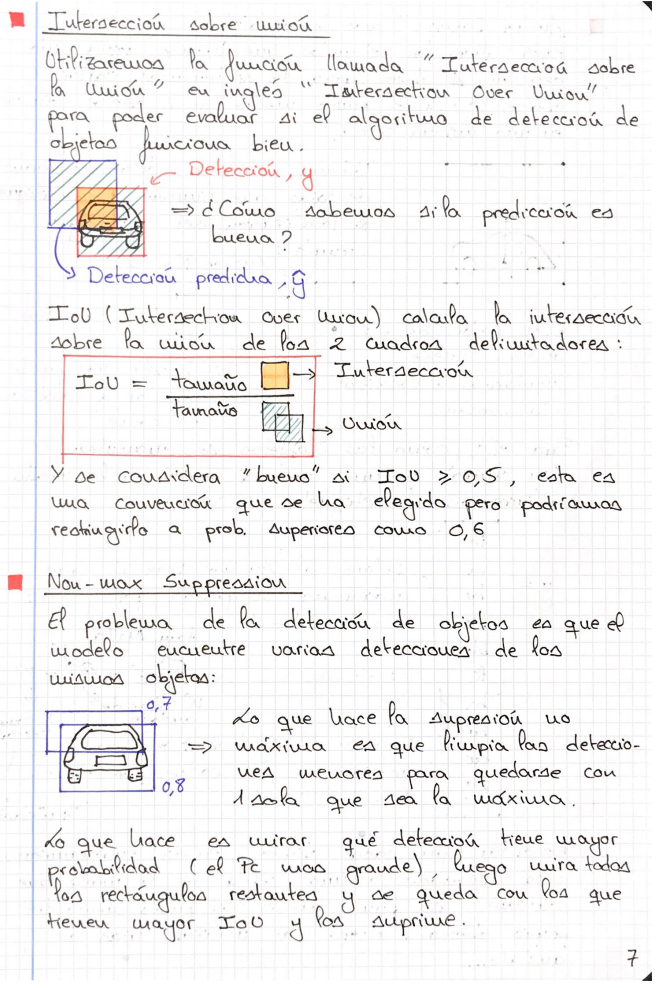 Intersección sobre unión
Utilizaremos la función llamada "Intersección sobre
la unión" en inglés "Intersection Over Union"
para poder evaluar si el algoritmo de detección de
objetos funciona bien.
Detección, y
⇒ ¿Cómo sabemos si la predicción es
buena?
Detección predicha, ŷ
IoU (Intersection over union) calcula la intersección
sobre la unión de los 2 cuadros delimitadores:
IoU = tamaño → Intersección
tamaño → Unión
Y se considera "bueno" si IoU ⩾ 0,5, esta es
una convención que se ha elegido pero podríamos
restringirlo a prob. superiores como 0,6
Non-max Suppression
El problema de la detección de objetos es que el
modelo encuentre varias detecciones de los
mismos objetos:
0,7
0,8
Lo que hace la supresión no
⇒ máxima es que limpia las deteccio-
nes menores para quedarse con
1 sola que sea la máxima.
Lo que hace es mirar qué detección tiene mayor
probabilidad (el Pc mas grande), luego mira todos
los rectángulos restantes y se queda con los que
tienen mayor IoU y los suprime.
7